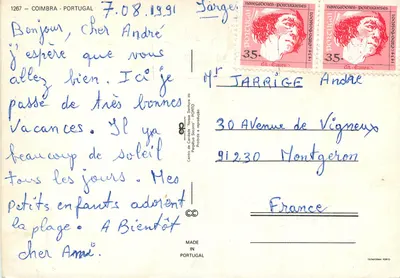 1267 - COIMBRA - PORTUGAL
7.08.1991
Bonjour, cher André
j'espère que vous
allez bien. Ici je
passe de très bonnes
vacances. Il ya
beaucoup de soleil
tous les jours. Mes
petits enfants adorent
la plage. A Bientôt
cher Ami.
MADE
IN
PORTUGAL
PORTUGAL
35.
PORTUGAL
35.
Mr JARRIGE André
30 Avenue de Vigneux
91230 Montgeron
France